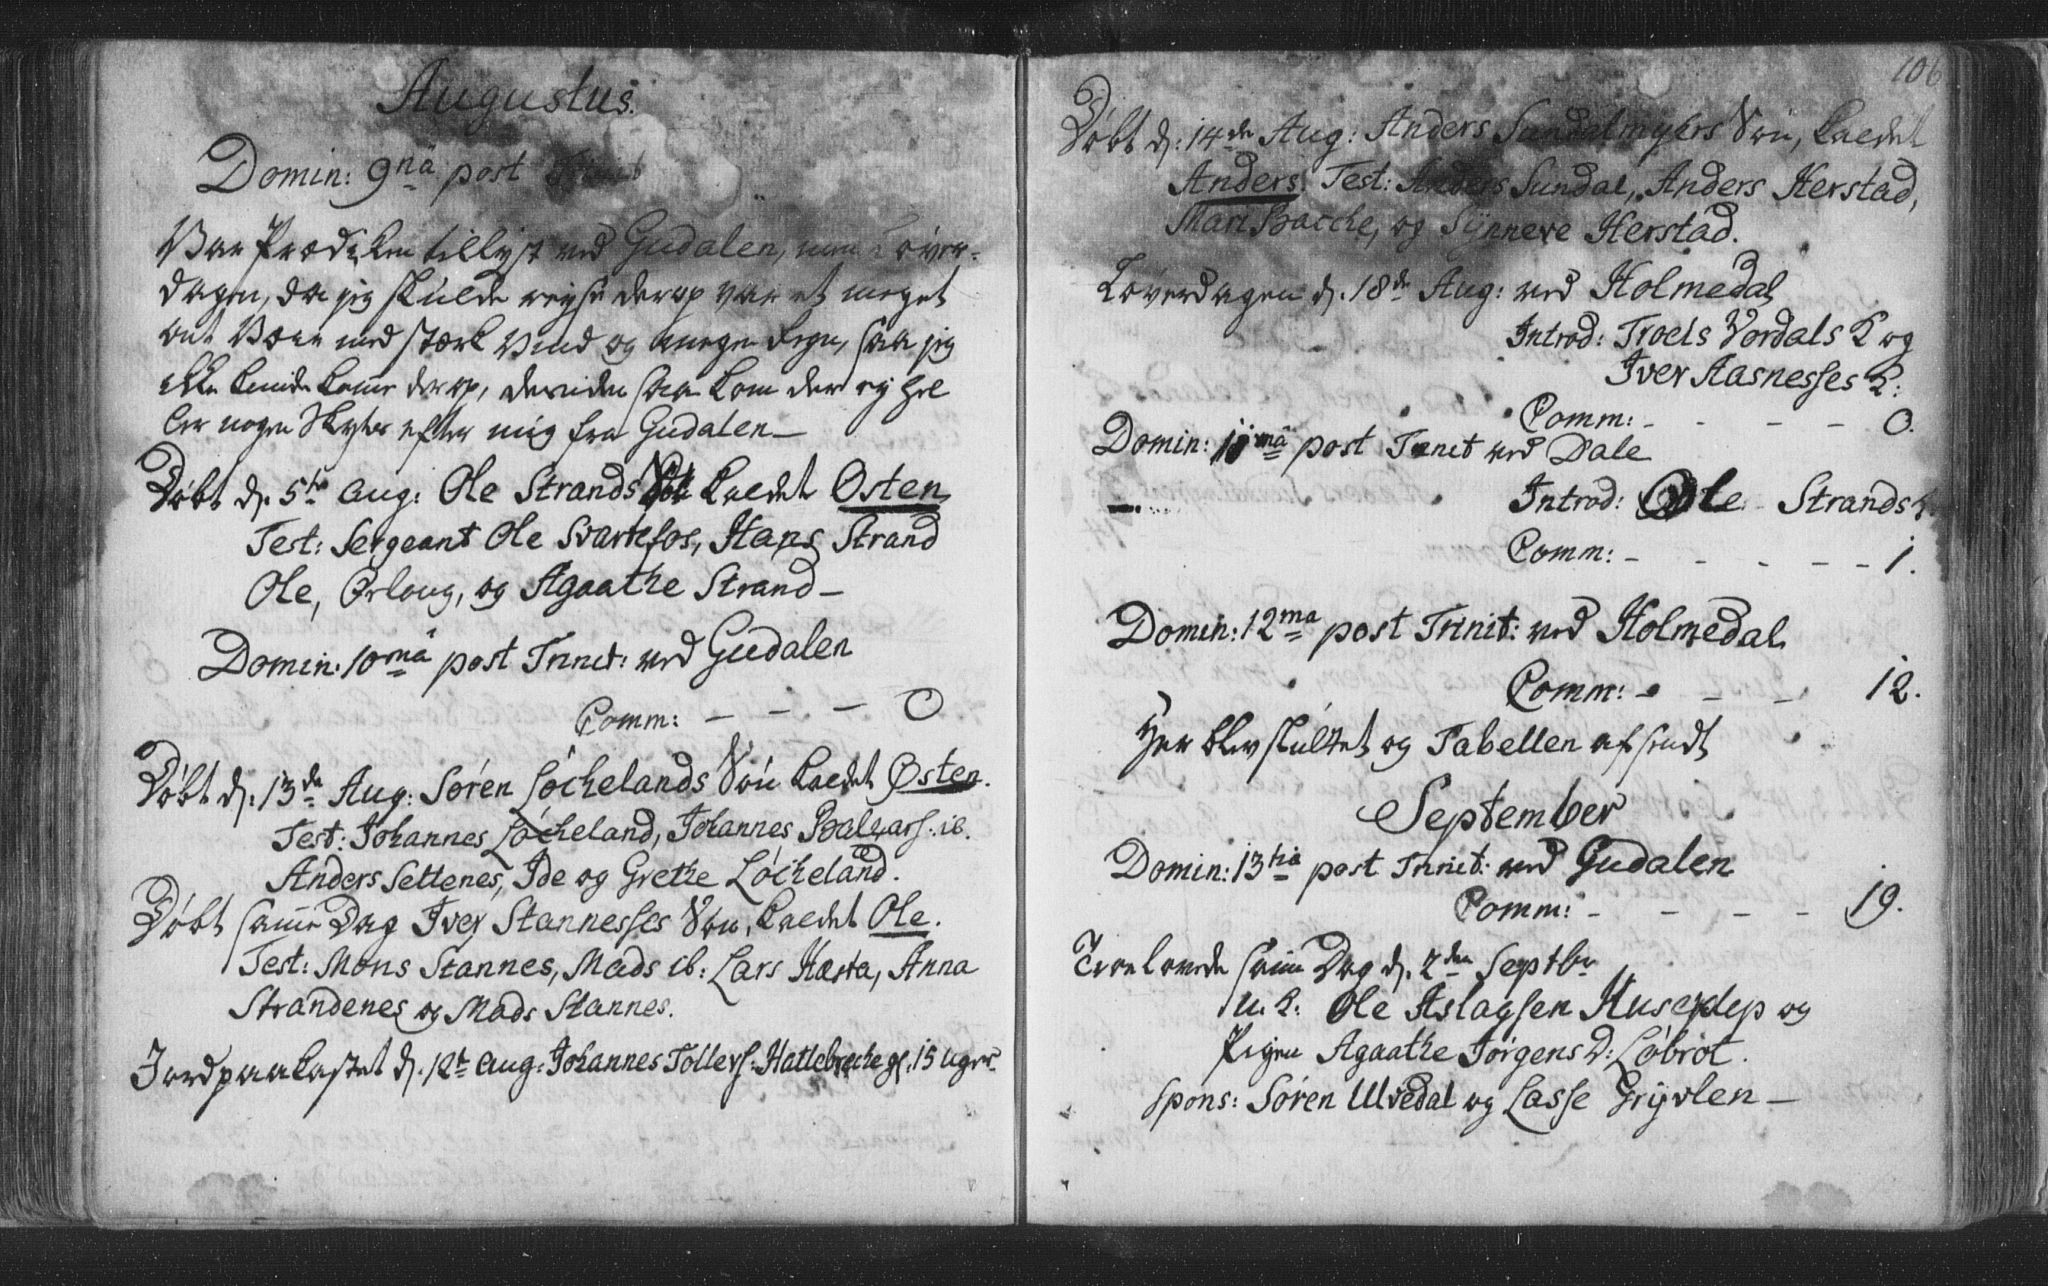 Augustus.
Domin: 9nä post Trinit
Var Prædiken tillyst ved Gudalen, men Løver-
dagen, da jeg skulde reyse derop var et meget
ont Væir med stærk Vind og megen Regn, saa jeg
ikke kunde komme derop, desuden saa kom der ey hel
ler nogen Skyds efter mig fra Gudalen—
Døbt d. 5te Aug: Ole Strands kaldet Østen
Test: Sergeant Ole Svartefos, Hans Strand
Ole, Ørloug, og Agaathe Strand—
Domin: 10mä post Trinit: ved Gudalen
Comm: — — — 0
Døbt d. 13de Aug: Søren Løchelands Søn kaldet Østen.
Test: Johannes Løcheland, Johannes ib.
Anders Settenes, Ide og Grethe Løcheland.
Døbt samme Dag Iver Stannesses Søn, kaldet Ole.
Test: Mons Stannes, Mads ib: Lars Hæsta, Anna
Strandenes og Mads Stannes.
Jordpaakastet d. 12te Aug: Johannes Tollers: Hattebreche gl. 15 uger
106
Døbt d. 14de Aug: Anders Sundalmyhrs Søn, kaldet
Anders. Test: Anders Sundal, Anders Herstad,
Mari Bacche, og Synneve Herstad.
Løverdagen d. 18de Aug: ved Holmedal
Introd: Troels Vordals K og
Iver Aasnesses K:
Comm: - - - - 0.
Domin: 11mä post Trinit ved Dale
Introd: Ole Strands K.
Comm: - - - - - 1.
Domin: 12ma post Trinit: ved Holmedal
Comm: - - - 12.
Her blev skultet og Tabellen afsendt
September
Domin: 13tia post Trinit: ved Gudalen
Comm: - - - - 19.
Troelovede samme Dag d. 2den Septbr
u. k: Ole Aslagsen Husetklep og
Pigen Agaathe Jørgens D: Løbrot.
Spons: Søren Ulvedal og Lasse Grytlen—